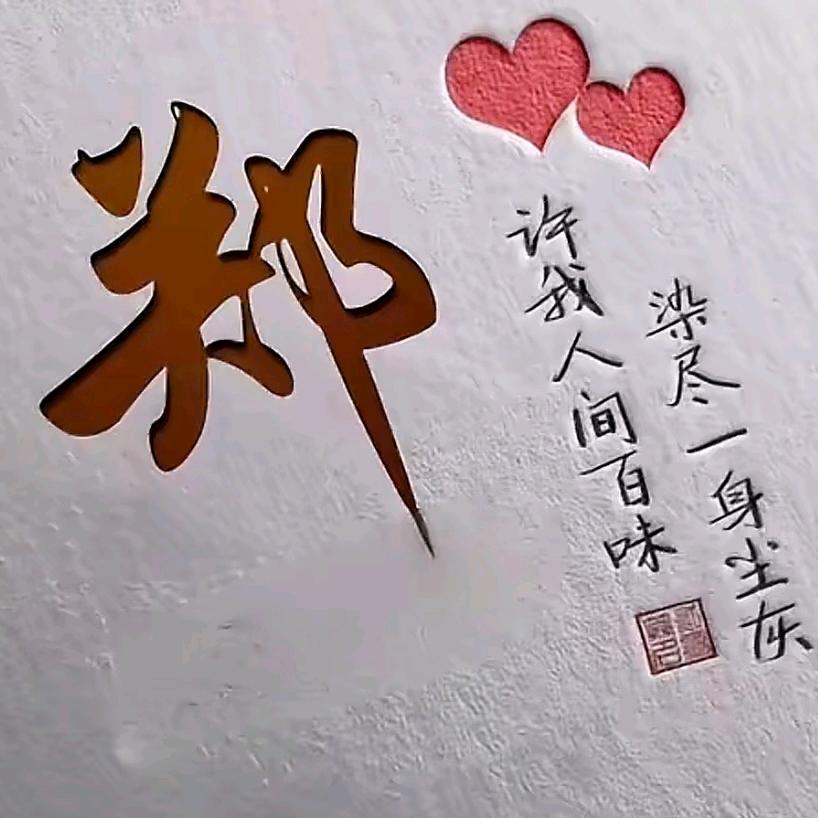 郑
染尽一身尘灰
许我人间百味